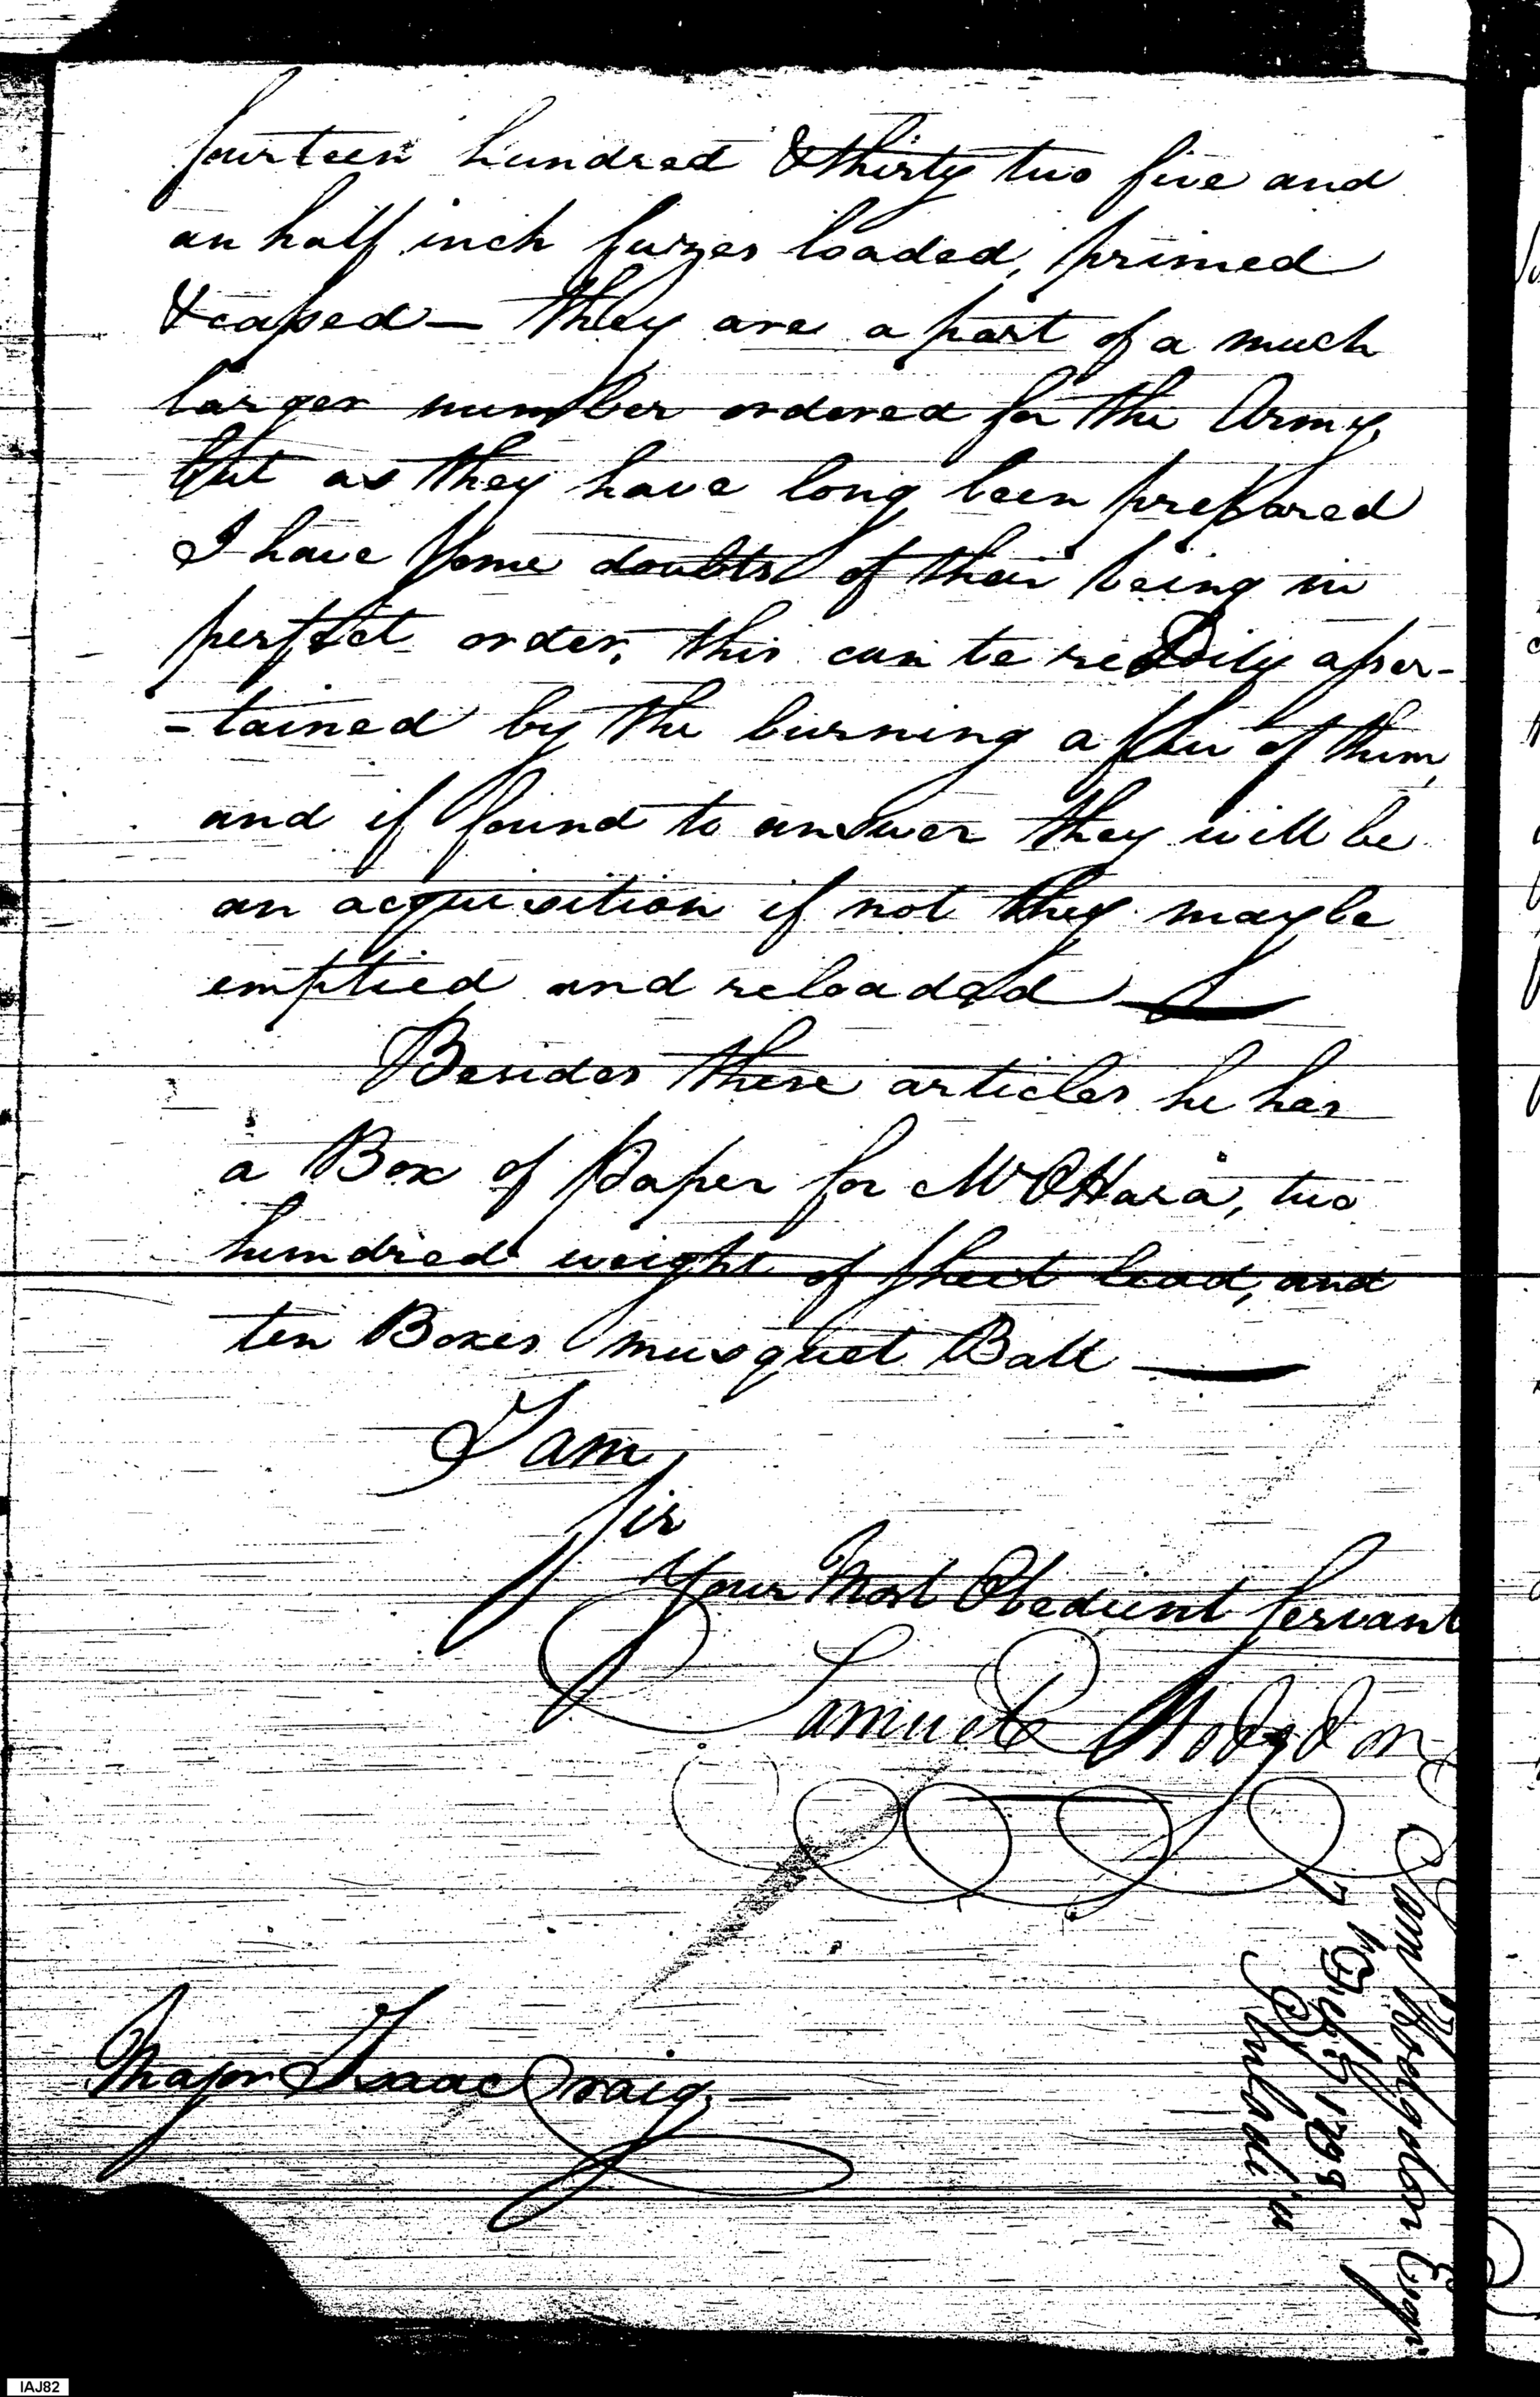 fourteen hundred & thirty two five and
an half inch fuizes loaded, primed
& caped — they are a part of a much
larger number ordered for the Army,
but as they have long been prepared
I have some doubts of their being in
perfect order, this can be readily asser-
-tained by the burning a few of them,
and if found to answer they will be
an acquisition if not they may be
emptied and reloaded —
Besides these articles he has
a Box of Paper for Mr OHara, two
hundred weight of sheet lead, and
ten Boxes musquet Ball —
I am
Sir
Your Most Obedient Servant
Samuel Hodgdon
Major Isaac Craig
Sam Hodgdon Esqr
Philadi'a
IAJ82